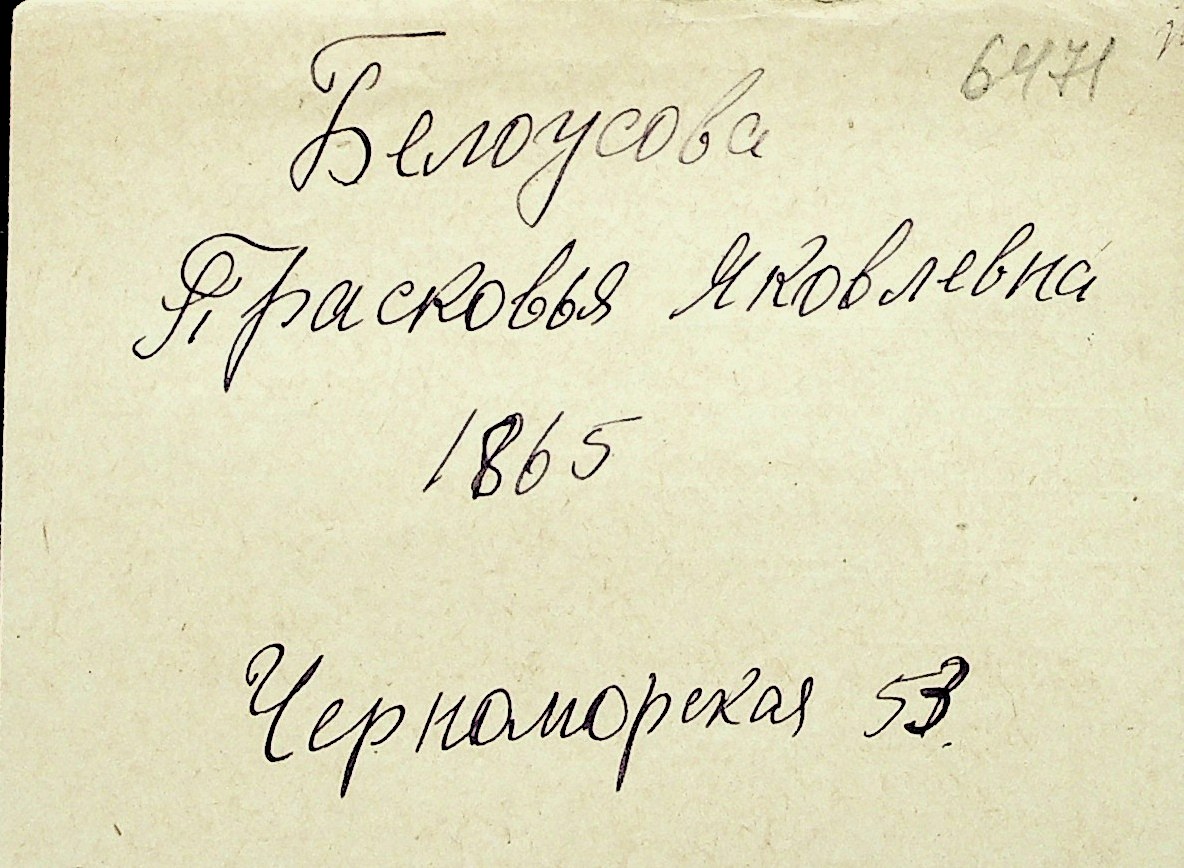 6471
Белоусова
Прасковья Яковлевна
1865
Черноморская 53.